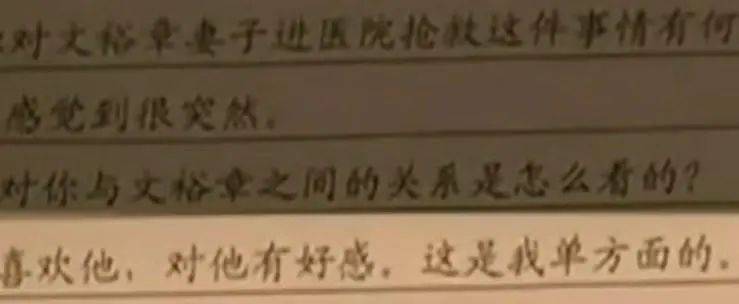 对文裕章妻子进医院抢救这件事情有何
感觉到很突然。
对你与文裕章之间的关系是怎么看的？
喜欢他，对他有好感。这是我单方面的。